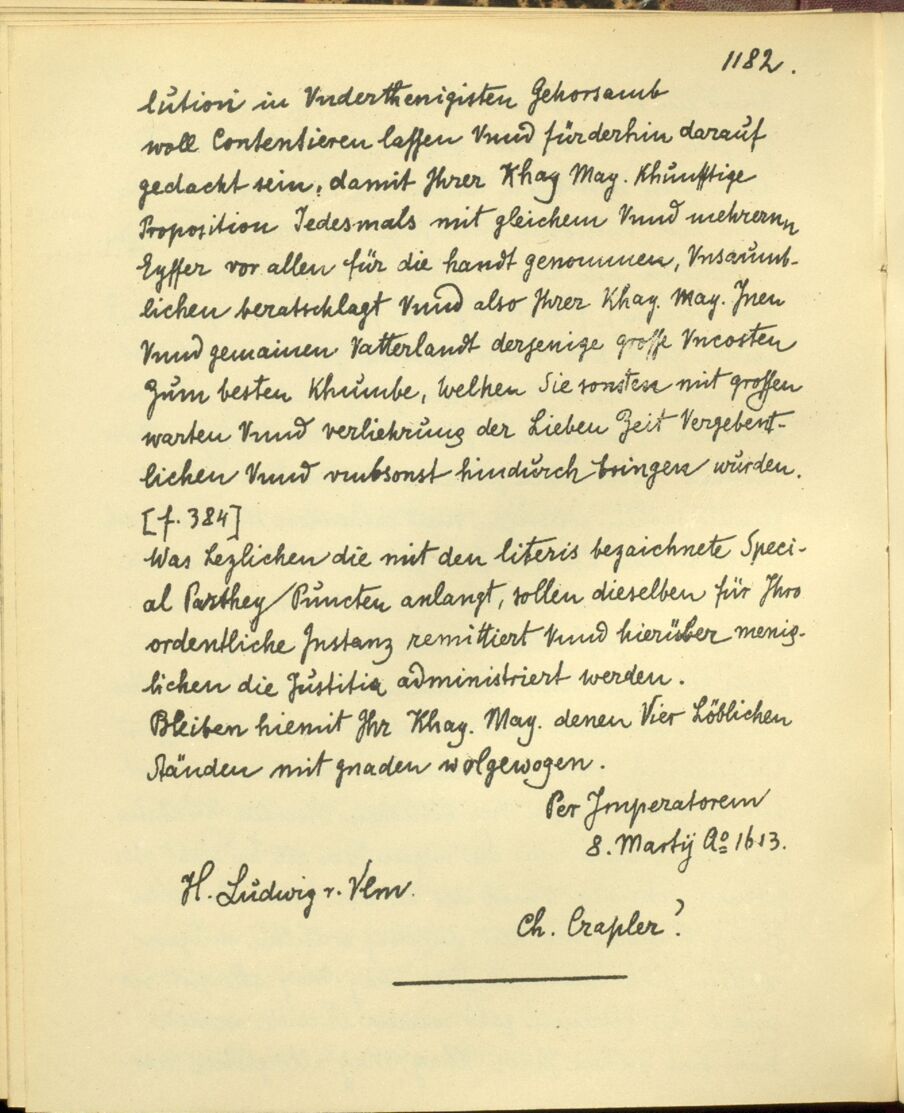 1182.
lution in Vnderthenigisten Gehorsamb
woll Contentieren lassen Vnnd fürderhin darauf
gedacht sein, damit Ihrer Khay May. Khunfftige
Proposition Jedesmals mit gleichem Vnnd mehrern
Eyffer vor allen für die handt genommen, Vnsaumb-
lichen beratschlagt Vnnd also Ihrer Khay. May. Jnen
Vnnd gemainen Vatterlandt derjenige grosse Vncosten
Zum besten Khumbe, Welhen Sie sonsten mit grossen
warten Vnnd verliehrung der Lieben Zeit Vergebent-
lichen Vnnd vmbsonst hindurch bringen würden.
[f. 384]
Was Lezlichen die mit den literis bezaichnete Speci-
al Parthey Puncten anlangt, sollen dieselben für Ihro
ordentliche Instanz remittiert Vnnd hierüber menig-
lichen die Justitia administriert werden.
Bleiben hiemit Ihr Khay. May. denen Vier Löblichen
Ständen mit gnaden wolgewogen.
Per Imperatorem
8. Martij Ao 1613.
H. Ludwig v. Vlm.
Ch. Crapler?